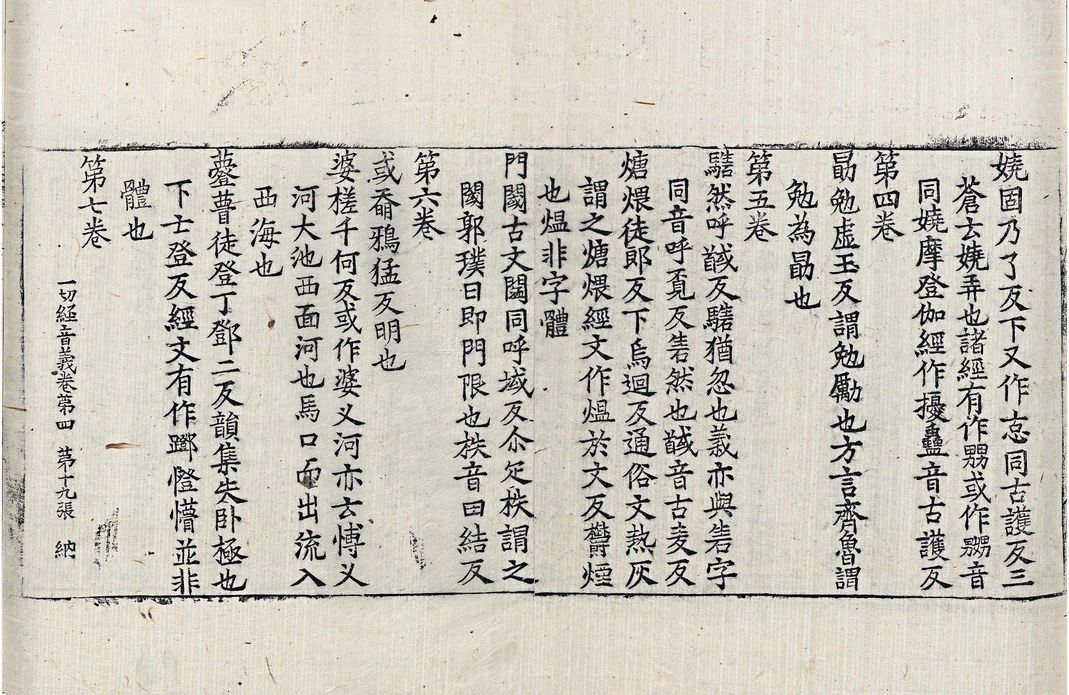 嬈固乃了反下又作怘同古護反三
蒼云嬈弄也諸經有作嬲或作嫐音
同嬈摩登伽經作擾蠱音古護反
第四卷
勗勉虛玉反謂勉勵也方言齊魯謂
勉為勗也
第五卷
騞然呼馘反騞猶忽也義亦與砉字
同音呼覓反砉然也馘音古麦反
煻煨徒郎反下烏迴反通俗文熱灰
謂之煻煨經文作煴於文反欝煙
也煴非字體
門閾古文閾同呼域反尒疋柣謂之
閾郭璞曰即門限也柣音田結反
第六卷
或奛鴉猛反明也
婆槎千何反或作婆义河亦云愽义
河大池西面河也馬口而出流入
西海也
䠬䒐徒登丁鄧二反韻集失卧極也
下士登反經文有作躑憕懵並非
體也
第七卷
一切經音義卷第四 第十九張 納